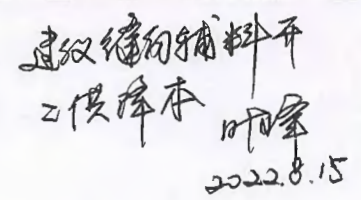 建议缝纫辅料开
二供降本 叶
2022.8.15